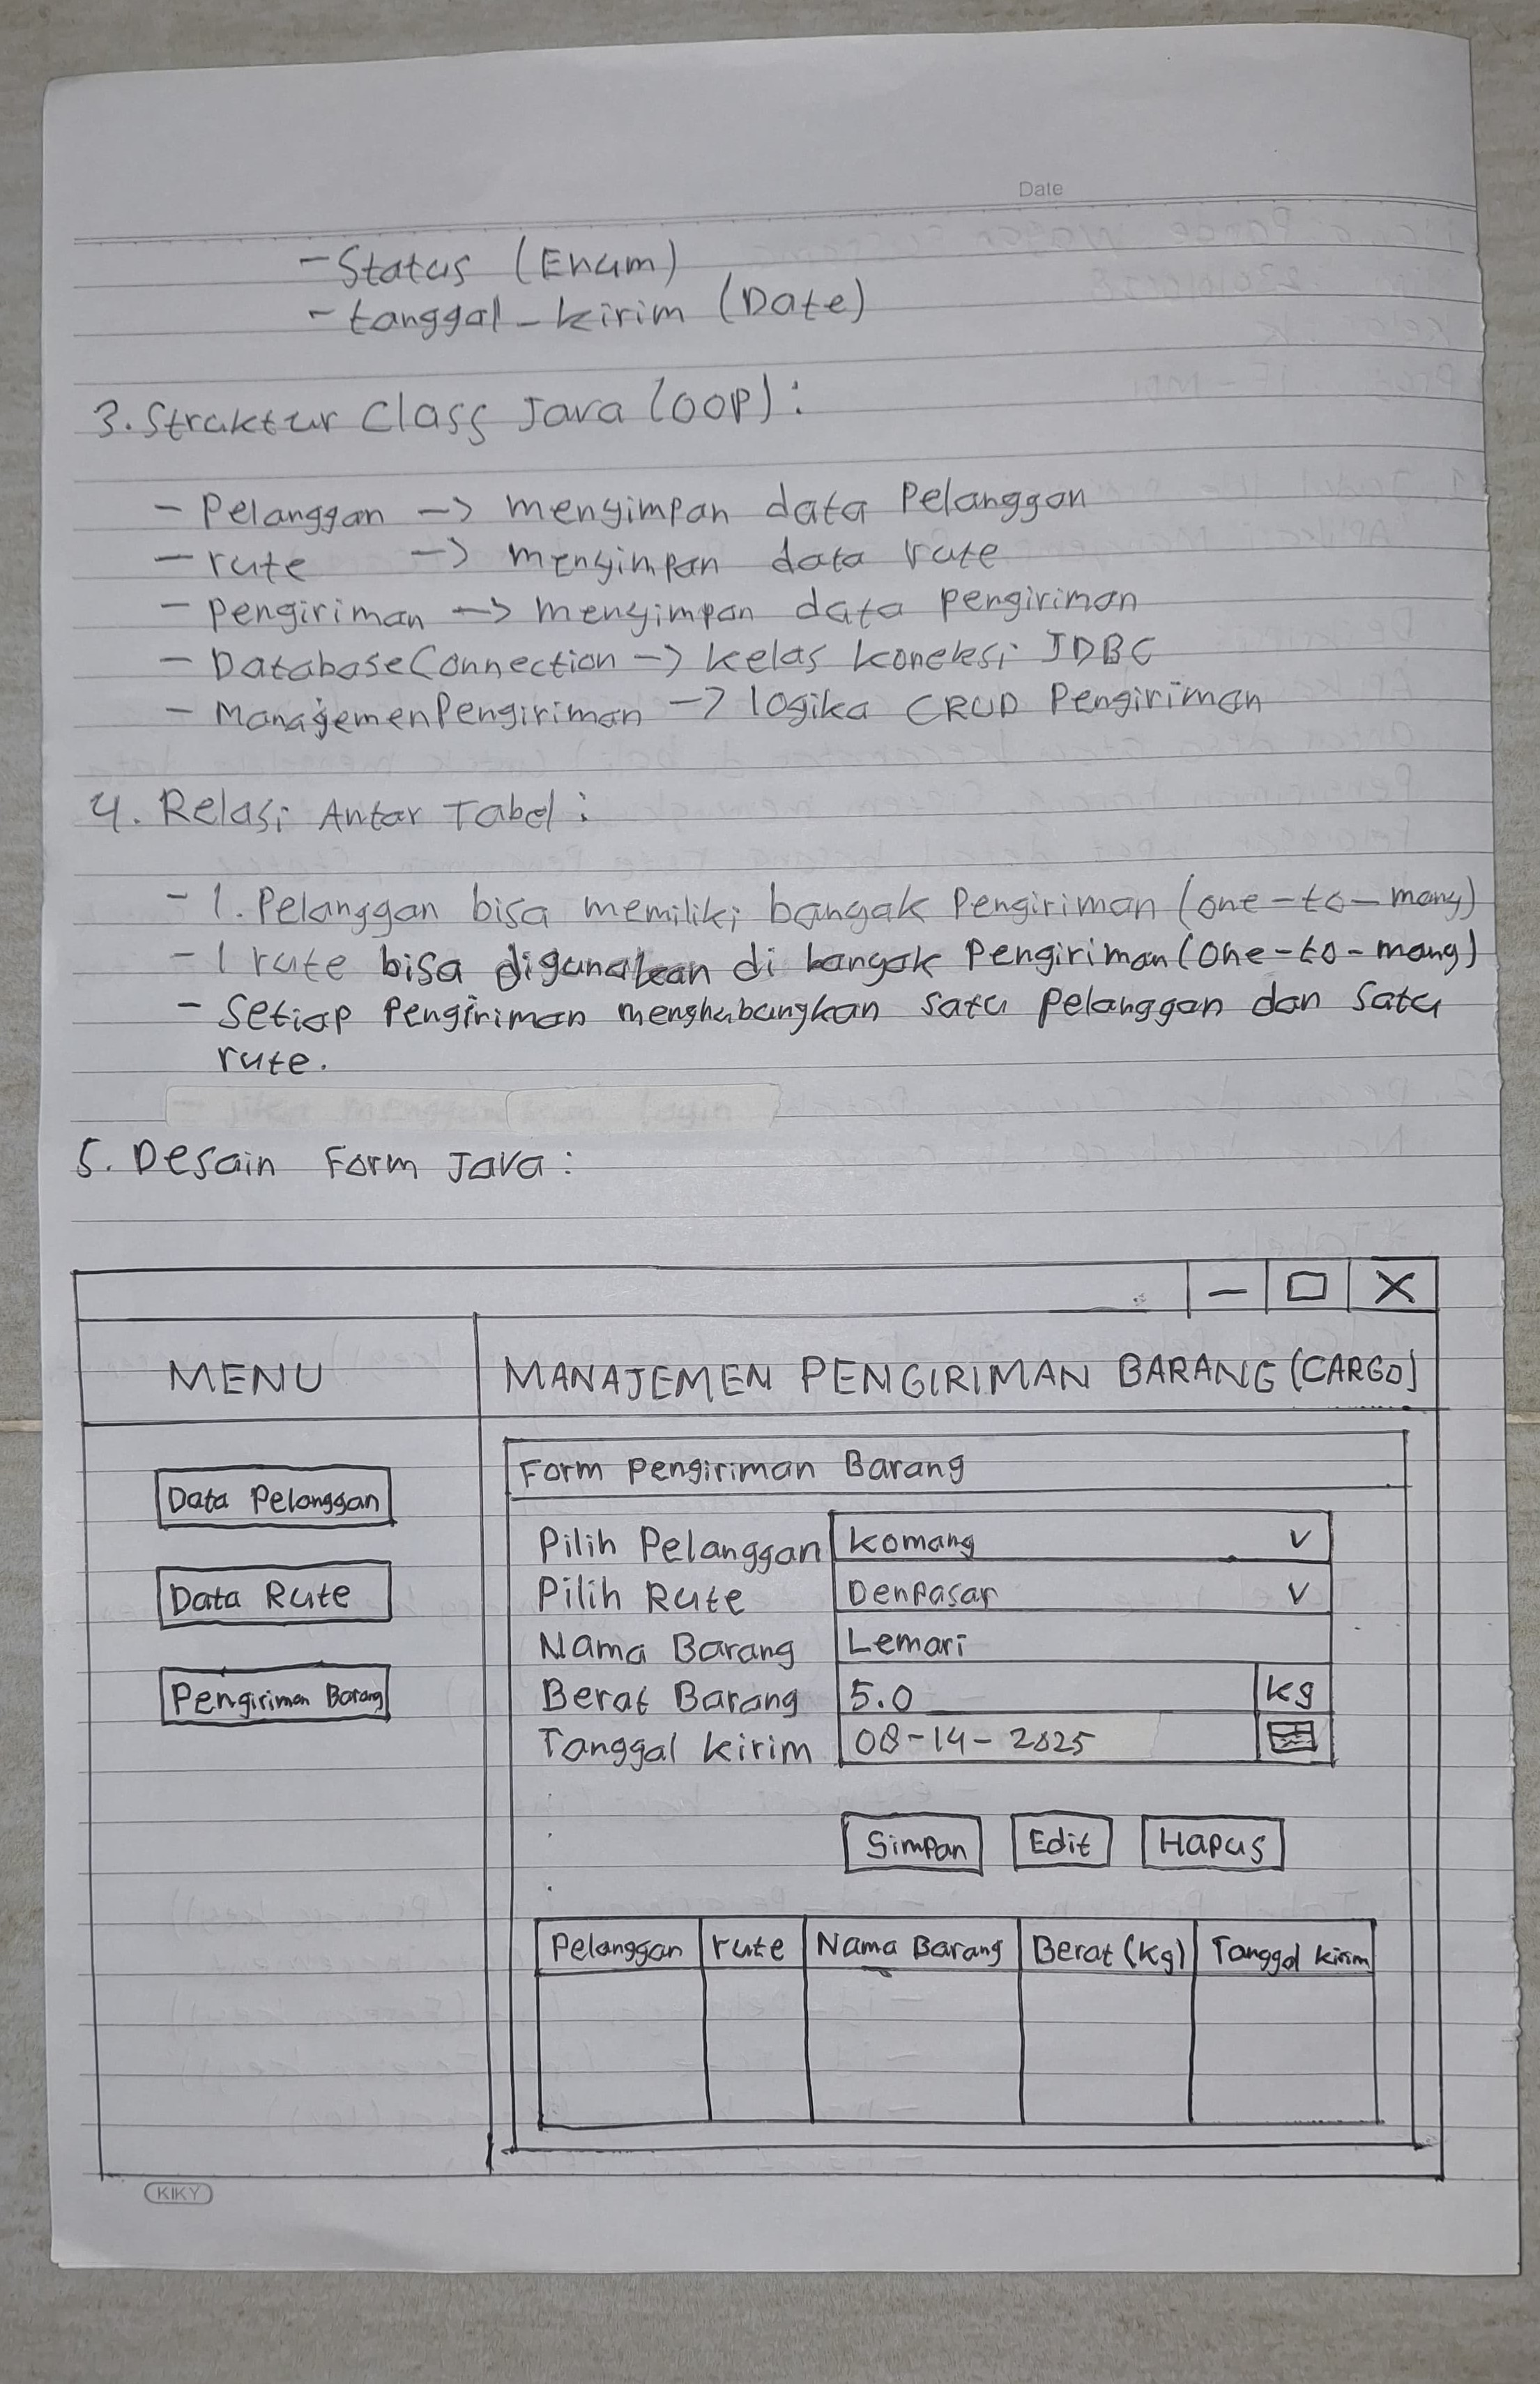 Date
- Status (Enum)
- tanggal_kirim (Date)
3. Struktur Class Java (OOP) :
- Pelanggan -> menyimpan data Pelanggan
- rute -> menyimpan data rute
- Pengiriman -> menyimpan data pengiriman
- DatabaseConnection -> kelas koneksi JDBC
- ManajemenPengiriman -> logika CRUD Pengiriman
4. Relasi Antar Tabel :
- 1. Pelanggan bisa memiliki banyak Pengiriman (one-to-many)
- 1 rute bisa digunakan di banyak Pengiriman (one-to-many)
- Setiap Pengiriman menghubungkan satu pelanggan dan satu
rute.
5. Desain Form Java :
- □ X
MENU MANAJEMEN PENGIRIMAN BARANG (CARGO)
Form Pengiriman Barang
Data Pelanggan
Pilih Pelanggan Komang v
Data Rute
Pilih Rute Denpasar v
Nama Barang Lemari
Pengiriman Barang
Berat Barang 5.0 kg
Tanggal kirim 08-14-2025
Simpan Edit Hapus
Pelanggan rute Nama Barang Berat (Kg) Tanggal kirim
KIKY